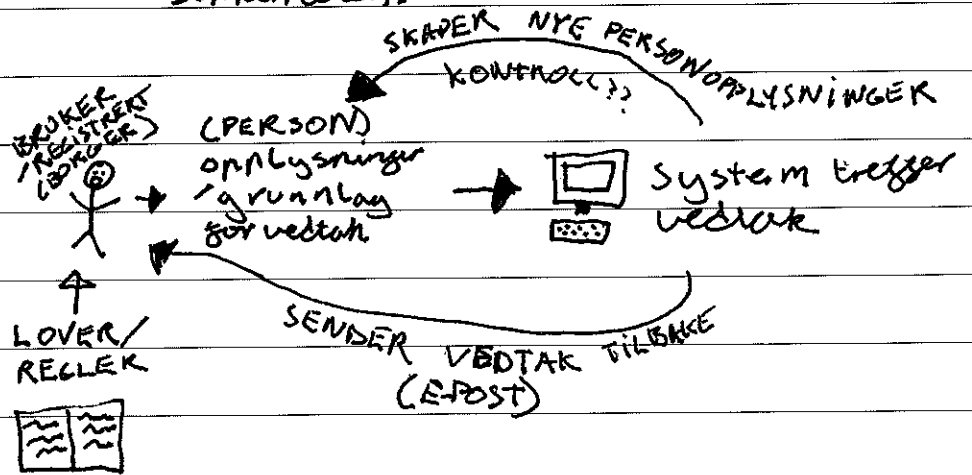 SKAPER NYE PERSONOPPLYSNINGER
KONTROLL??
BRUKER
/REGISTRERT
(BORGER)
(PERSON)
opplysninger
/grunnlag
for vedtak
system treffer
vedtak
SENDER VEDTAK TILBAKE
(E-POST)
LOVER/
REGLER